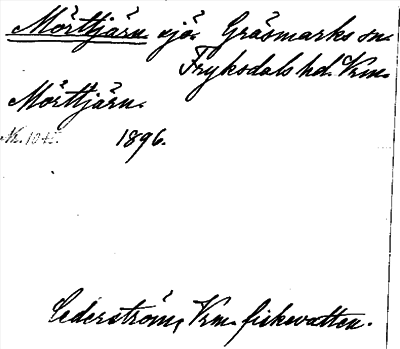 Mörttjärn sjö Gräsmarks sn.
Fryksdals hd. Vrm.
Mörttjärn.
1896.
Cederström, Vrm. fiskevatten.